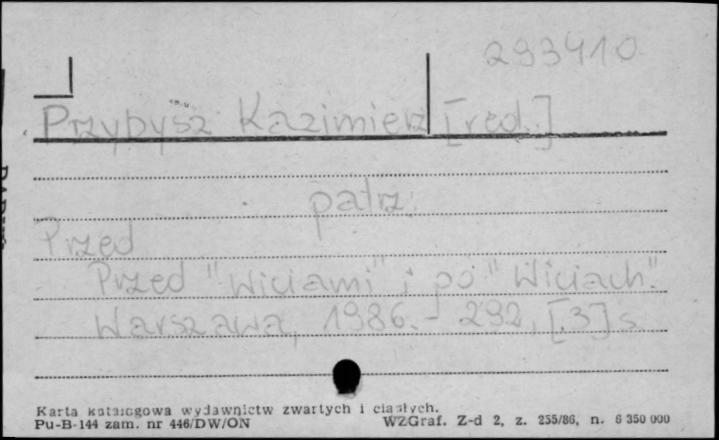 293410
Przybysz Kazimierz [red.]
patrz:
Przed
Przed "Wiciami" i po "Wiciach".
Warszawa, 1986. - 292, [3] s.
Karta katalogowa wydawnictw zwartych i ciągłych.
Pu-B-144 zam. nr 446/DW/ON WZGraf. Z-d 2, z. 255/86, n. 6 350 000